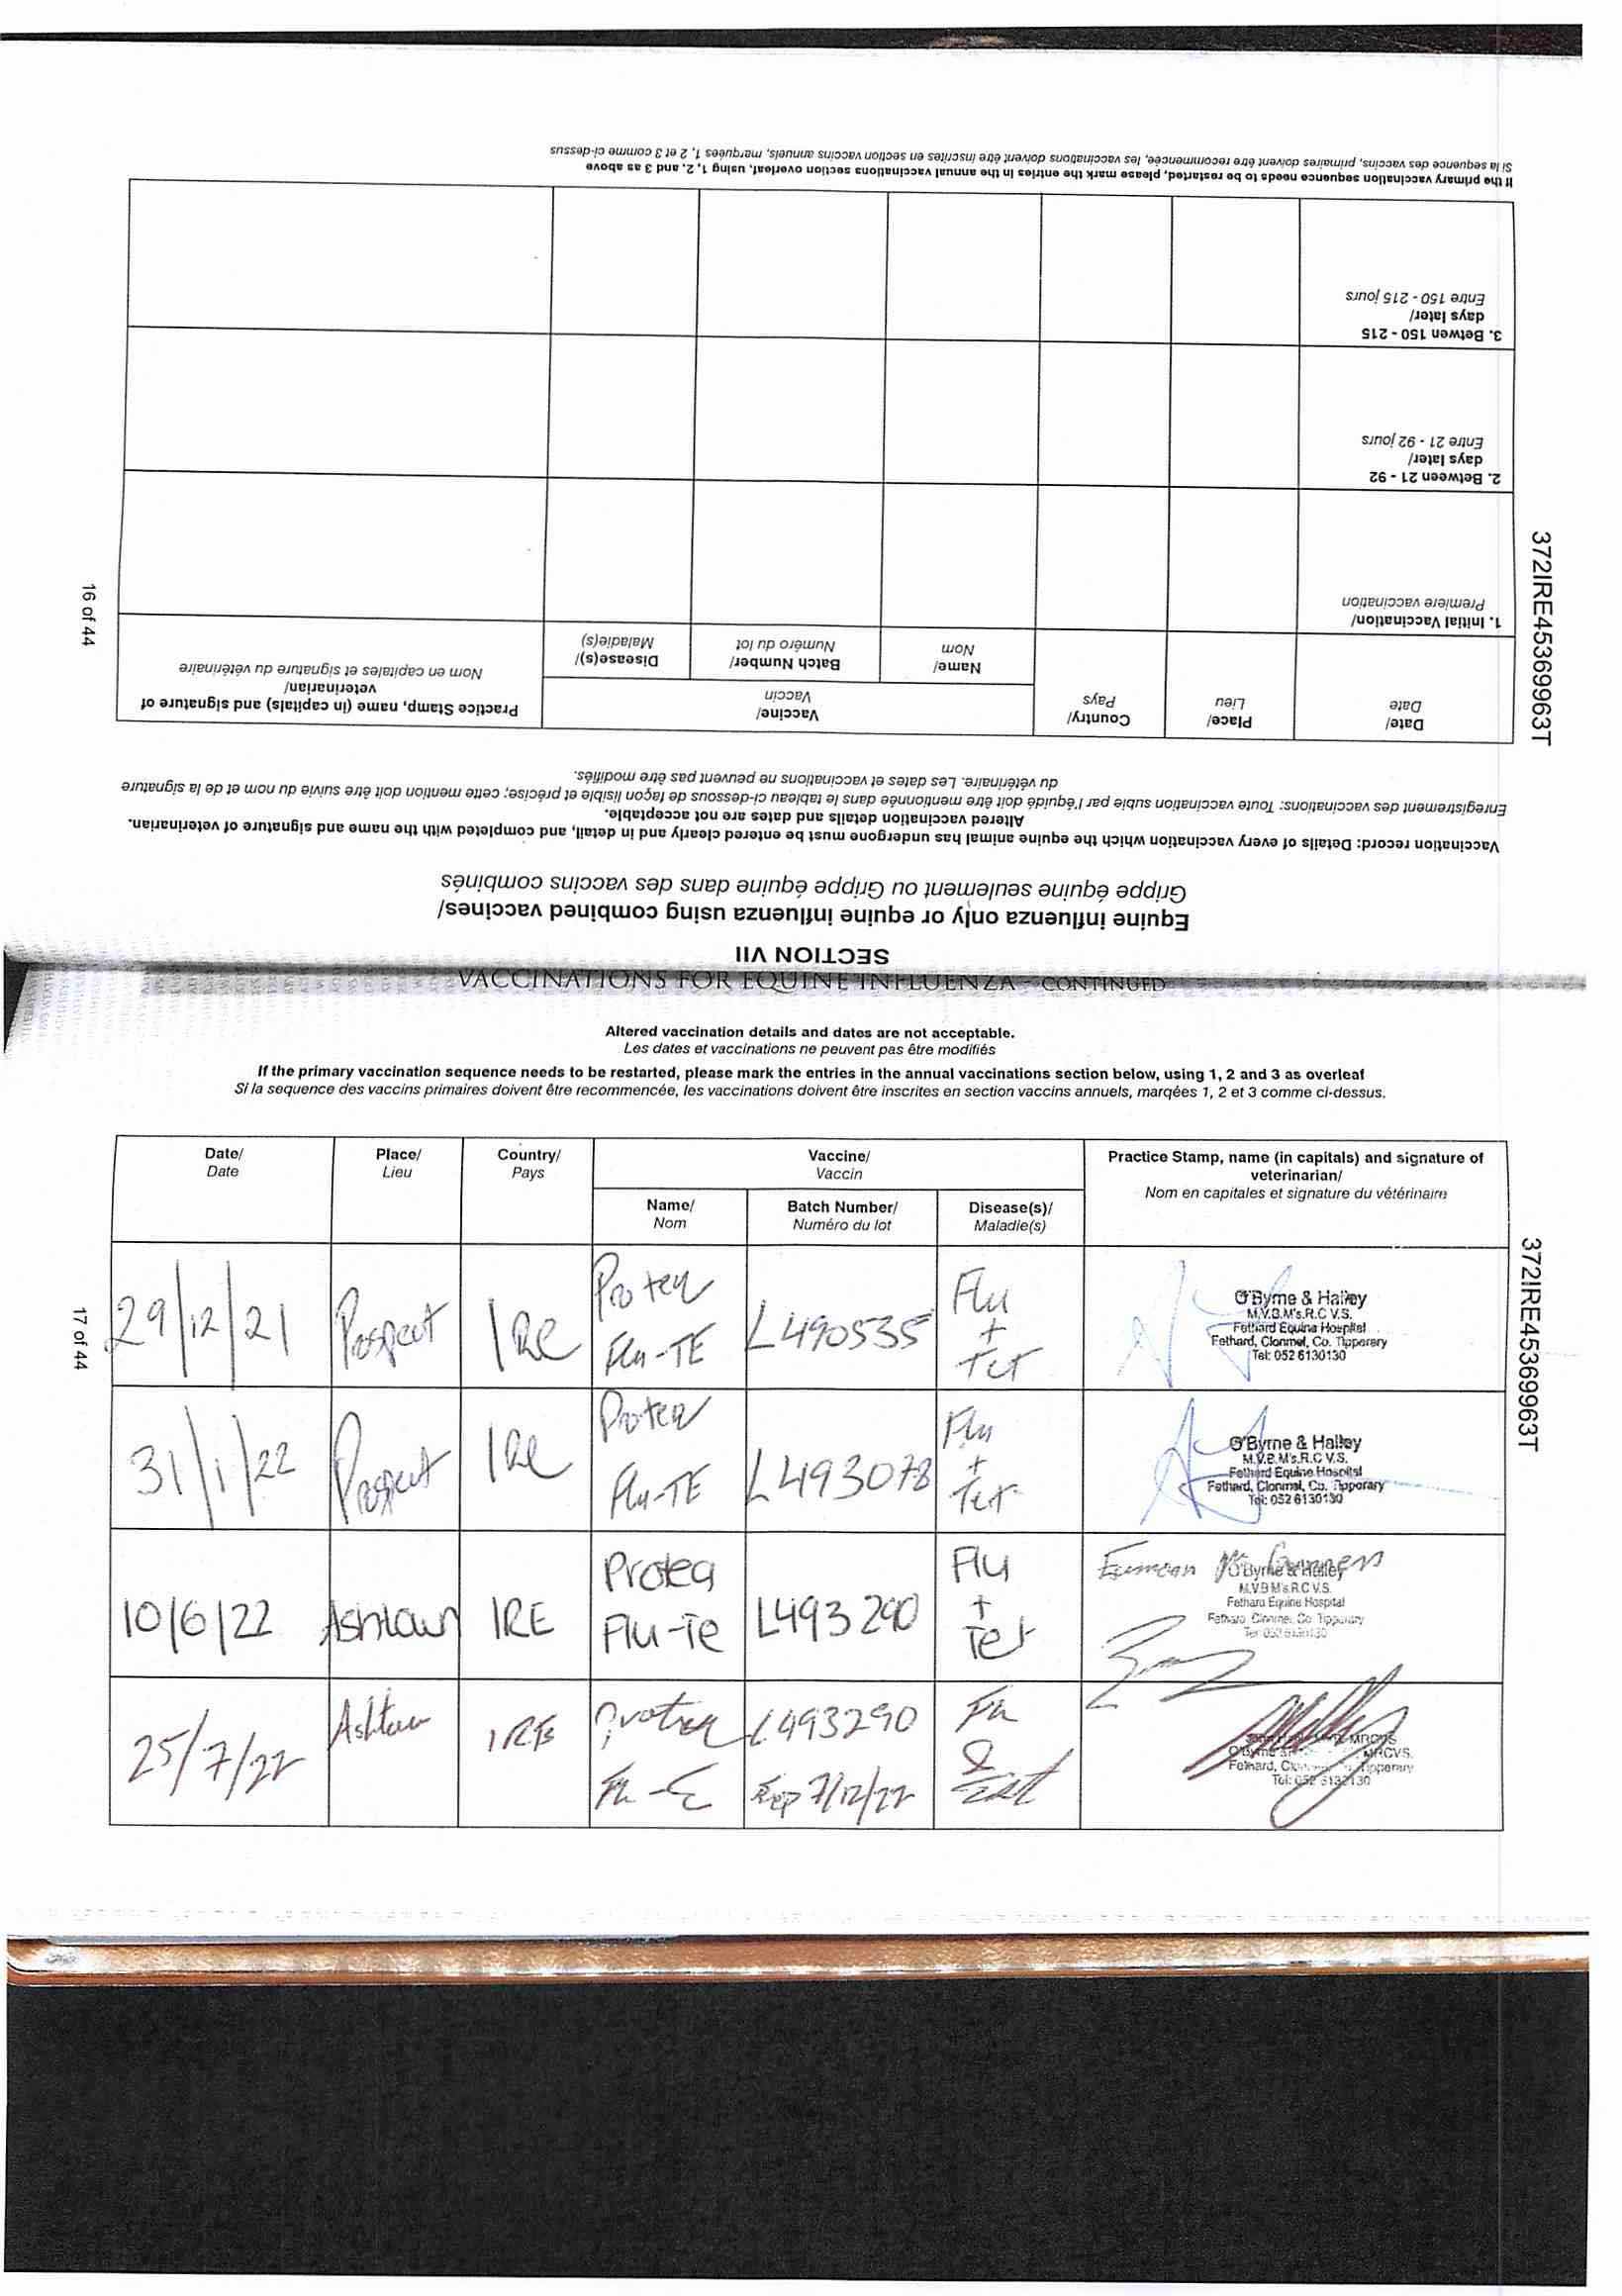 SECTION VII
Equine influenza only or equine influenza using combined vaccines/
Grippe équine seulement ou Grippe équine dans des vaccins combinés
Vaccination record: Details of every vaccination which the equine animal has undergone must be entered clearly and in detail, and completed with the name and signature of veterinarian.
Altered vaccination details and dates are not acceptable.
Enregistrement des vaccinations: Toute vaccination subie par l'équidé doit être mentionnée dans le tableau ci-dessous de façon lisible et précise; cette mention doit être suivie du nom et de la signature
du vétérinaire. Les dates et vaccinations ne peuvent pas être modifiés.
Date/
Date
Place/
Lieu
Country/
Pays
Vaccine/
Vaccin
Name/
Nom
Batch Number/
Numéro du lot
Disease(s)/
Maladie(s)
Practice Stamp, name (in capitals) and signature of
veterinarian/
Nom en capitales et signature du vétérinaire
1. Initial Vaccination/
Premiere vaccination
2. Between 21 - 92
days later/
Entre 21 - 92 jours
3. Betwen 150 - 215
days later/
Entre 150 - 215 jours
If the primary vaccination sequence needs to be restarted, please mark the entries in the annual vaccinations section overleaf, using 1, 2, and 3 as above
Si la sequence des vaccins, primaires doivent être recommencée, les vaccinations doivent être inscrites en section vaccins annuels, marquées 1, 2 et 3 comme ci-dessus
372IRE45369963T
16 of 44
VACCINATIONS FOR EQUINE INFLUENZA - CONTINUED
Altered vaccination details and dates are not acceptable.
Les dates et vaccinations ne peuvent pas être modifiés
If the primary vaccination sequence needs to be restarted, please mark the entries in the annual vaccinations section below, using 1, 2 and 3 as overleaf
Si la sequence des vaccins primaires doivent être recommencée, les vaccinations doivent être inscrites en section vaccins annuels, marqées 1, 2 et 3 comme ci-dessus.
Date/
Date
Place/
Lieu
Country/
Pays
Vaccine/
Vaccin
Name/
Nom
Batch Number/
Numéro du lot
Disease(s)/
Maladie(s)
Practice Stamp, name (in capitals) and signature of
veterinarian/
Nom en capitales et signature du vétérinaire
29/12/21
Prospect
IRE
Proteq
Flu-TE
L490535
Flu
+
Tet
O'Byrne & Halley
M.V.B.M's.R.C V.S.
Fethard Equine Hospital
Fethard, Clonmel, Co. Tipperary
Tel: 052 6130130
31/1/22
Prospect
IRE
Proteq
Flu-TE
L493078
Flu
+
Tet
O'Byrne & Halley
M.V.B.M's.R.C V.S.
Fethard Equine Hospital
Fethard, Clonmel, Co. Tipperary
Tel: 052 6130130
10/6/22
Ashtown
IRE
Proteq
Flu-Te
L493290
Flu
+
Tet
O'Byrne & Halley
M.V.B.M's.R.C V.S.
Fethard Equine Hospital
Fethard, Clonmel, Co. Tipperary
Tel: 052 6130130
25/7/22
Ashtown
IRE
Proteq
L493290
Exp 7/12/22
Flu
&
Tet
MRCVS
MRCVS.
Fethard, Tipperary
372IRE45369963T
17 of 44